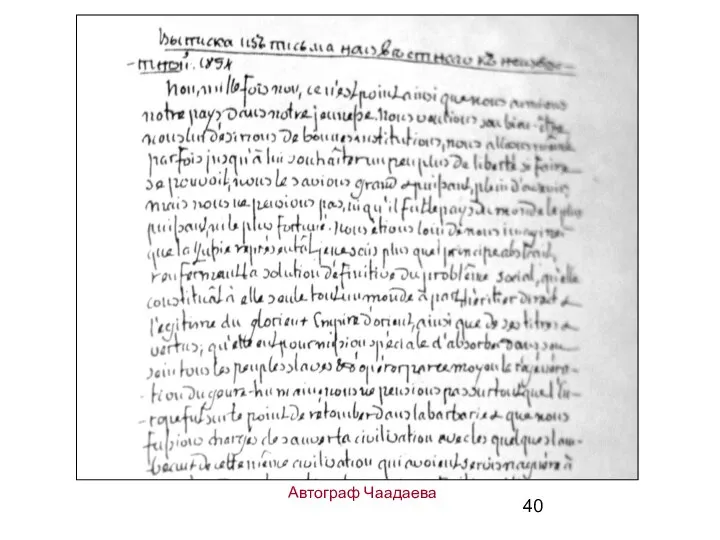 Выписка изъ письма неизвестнаго къ неизвес-
-тной. 1854
Non, mille fois non, ce n'est point ainsi que nous aimions
notre pays dans notre jeunesse. Nous voulions son bien-être
nous lui désirions de bonnes institutions, nous allions même
parfois jusqu'à lui souhaiter un peu plus de liberté si faire
se pouvoit, nous le savions grand & puissant, plein d'avenir,
mais nous ne pensions pas, ni qu'il fut le pays du monde le plus
puissant, ni le plus fortuné. Nous étions loin de nous imaginer
que la Russie représentât je ne sais plus quel principe abstrait,
renfermant la solution définitive du problème social, qu'elle
constituât à elle seule tout un monde à part héritier direct &
légitime du glorieux Empire d'orient, ainsi que de ses titres &
vertus; qu'elle eut pour mission spéciale d'absorber dans son
sein tous les peuples slaves & d'opérer par ce moyen la régénéra-
-tion du genre-humain; nous ne pensions pas surtout que l'Eu-
-rope fut sur le point de retomber dans la barbarie & que nous
fussions chargés de sauver la civilisation avec les quelques lam-
beaux de cette même civilisation qui avoient servis naguère à
Автограф Чаадаева
40